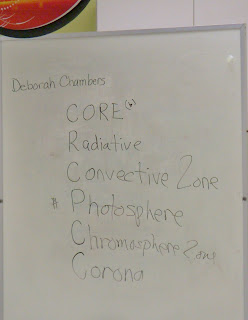 Deborah Chambers
CORE(*)
Radiative
Convective Zone
# Photosphere
Chromosphere Zone
Corona